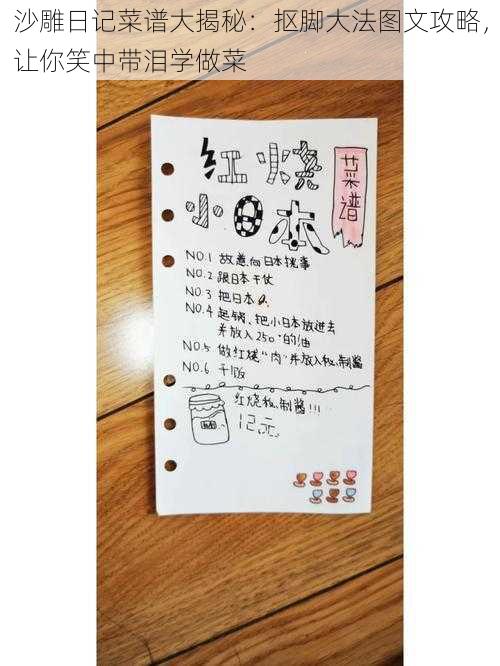 沙雕日记菜谱大揭秘：抠脚大法图文攻略，
让你笑中带泪学做菜
红烧
小日本
菜谱
NO.1 故意向日本挑事
NO.2 跟日本干仗
NO.3 把日本
NO.4 起锅、把小日本放进去
并放入250°的油
NO.5 做红烧“肉”并放入秘制酱
NO.6 干饭
红烧秘制酱!!!
12元